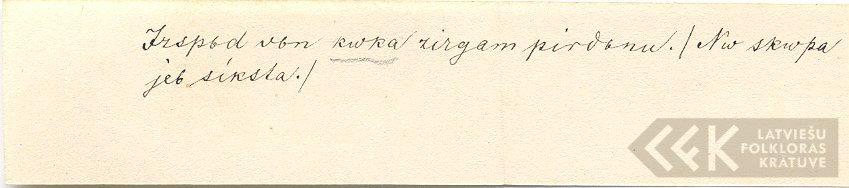 Izspьd vьn kwka zirgam pirdьnu. /Nw skwpa
jeb síksta./
LATVIEŠU
FOLKLORAS
KRĀTUVE